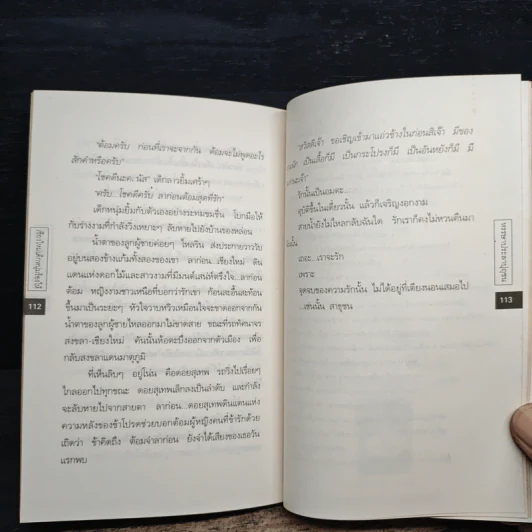 "ต้อมครับ ก่อนที่เราจะจากกัน ต้อมจะไม่พูดอะไร
สักคำหรือครับ"
"โชคดีนะคะ นัส" เด็กสาวยิ้มเศร้าๆ
"ครับ โชคดีครับ ลาก่อนต้อมสุดที่รัก"
เด็กหนุ่มยิ้มกับตัวเองอย่างระทมขมขื่น โบกมือให้
กับร่างงามที่กำลังวิ่งเหยาะๆ ลับหายไปยังบ้านของหล่อน
น้ำตาของลูกผู้ชายค่อยๆ ไหลริน ส่งประกายวาววับ
อยู่บนสองข้างแก้มทั้งสองของเขา ลาก่อน เชียงใหม่ ดิน
แดนแห่งดอกไม้และสาวงามที่มีมนต์เสน่ห์ตรึงใจ...ลาก่อน
ต้อม หญิงงามชาวเหนือที่บอกว่ารักเขา ก้อนสะอื้นสะท้อน
ขึ้นมาเป็นระยะๆ หัวใจวาบหวิวเหมือนใจจะขาดออกจากกัน
น้ำตาของลูกผู้ชายไหลออกมาไม่ขาดสาย ขณะที่รถทัศนาจร
สงขลา-เชียงใหม่ คันนั้นห้อตะบึงออกจากตัวเมือง เพื่อ
กลับสงขลาแดนมาตุภูมิ
ที่เห็นลิบๆ อยู่โน่น คือดอยสุเทพ รถวิ่งไปเรื่อยๆ
ไกลออกไปทุกขณะ ดอยสุเทพเล็กลงเป็นลำดับ และกำลัง
จะลับหายไปจากสายตา ลาก่อน...ดอยสุเทพดินแดนแห่ง
ความหลังของข้าโปรดช่วยบอกต้อมผู้หญิงคนที่ข้ารักด้วย
เถิดว่า ข้าคิดถึง ต้อมจ๋าลาก่อน ยังจำได้เสียงของเธอวัน
แรกพบ
112
"สวัสดีเจ้า ขอเชิญเข้ามาแอ่วข้างในก่อนสิเจ้า มีของ
เป็นเสื้อก็มี เป็นกระโปรงก็มี เป็นอันหยังก็มี มี
รักนั้นเป็นอมตะ...
อุบัติขึ้นในเดี๋ยวนั้น แล้วก็เจริญงอกงาม
สายน้ำยังไม่ไหลกลับฉันใด รักเราก็คงไม่หวนคืนมา
ฉันนั้น
เธอ...เราจะรัก
เพราะ
จุดจบของความรักนั้น ไม่ได้อยู่ที่เตียงนอนเสมอไป
...เช่นนั้น สาธุชน
113